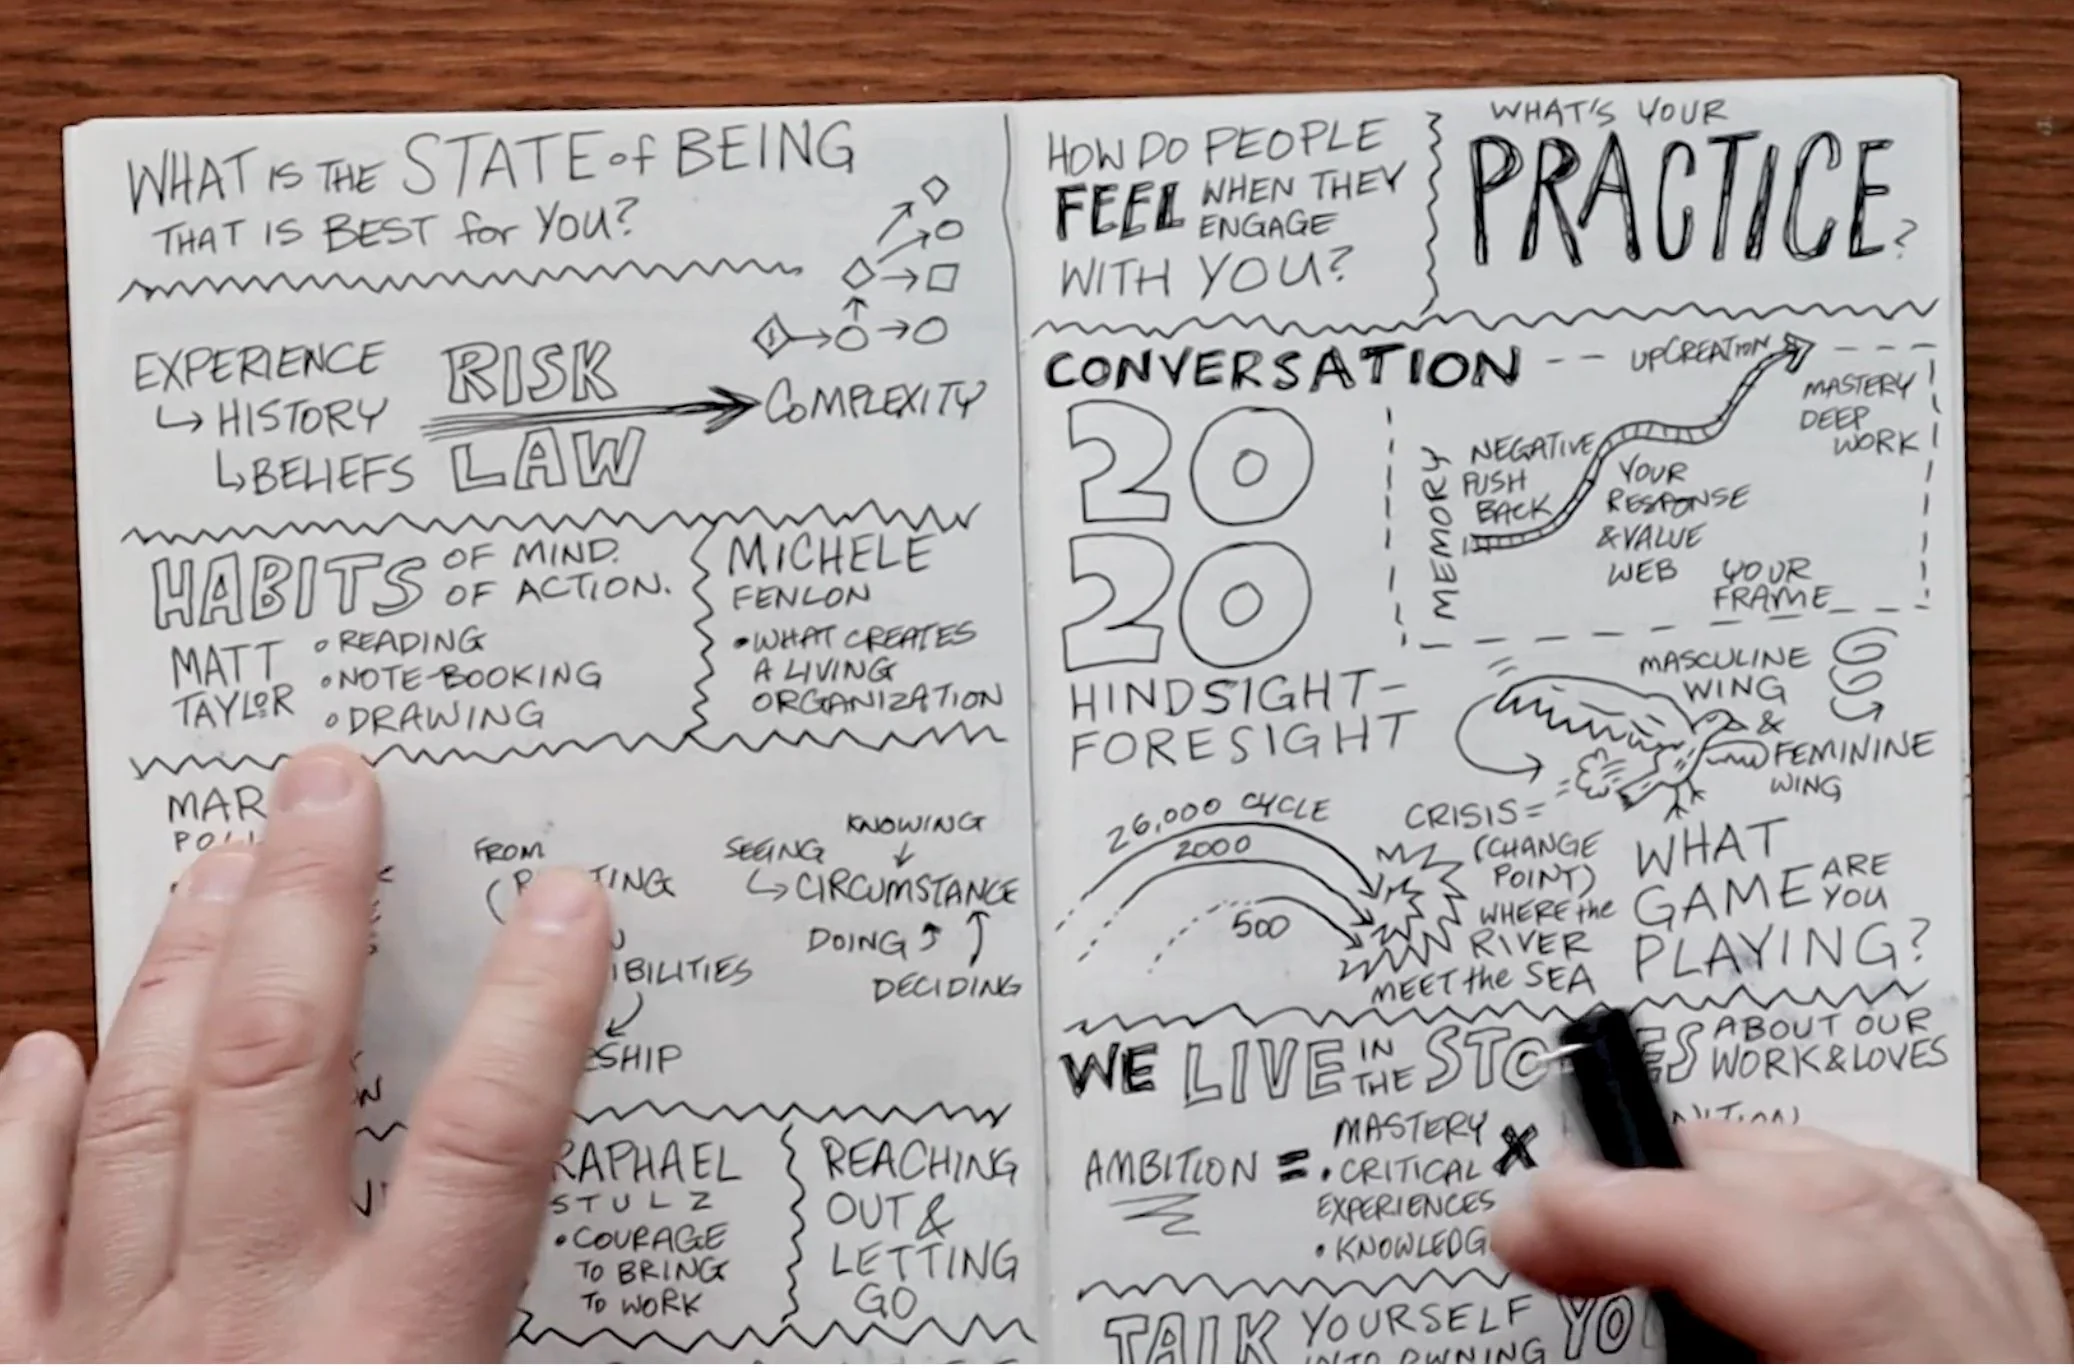 WHAT IS THE STATE of BEING
THAT IS BEST for YOU?
EXPERIENCE
HISTORY
BELIEFS
RISK
LAW
COMPLEXITY
HABITS OF MIND.
OF ACTION.
MATT
TAYLOR
• READING
• NOTE-BOOKING
• DRAWING
MICHELE
FENLON
• WHAT CREATES
A LIVING
ORGANIZATION
FROM
SEEING
KNOWING
CIRCUMSTANCE
DOING
DECIDING
RAPHAEL
STULZ
• COURAGE
TO BRING
TO WORK
REACHING
OUT &
LETTING
GO
HOW DO PEOPLE
FEEL WHEN THEY
ENGAGE
WITH YOU?
WHAT'S YOUR
PRACTICE?
CONVERSATION
20
20
HINDSIGHT-
FORESIGHT
UPCREATION
MASTERY
DEEP
WORK
MEMORY
NEGATIVE
PUSH
BACK
YOUR
RESPONSE
& VALUE
WEB
YOUR
FRAME
MASCULINE
WING
&
FEMININE
WING
26,000 CYCLE
2000
500
CRISIS =
(CHANGE
POINT)
WHERE the
RIVER
MEET the SEA
WHAT
GAME ARE
YOU
PLAYING?
WE LIVE IN
THE
ABOUT OUR
WORK & LOVES
AMBITION = MASTERY X
• CRITICAL
EXPERIENCES
TALK YOURSELF
INTO OWNING